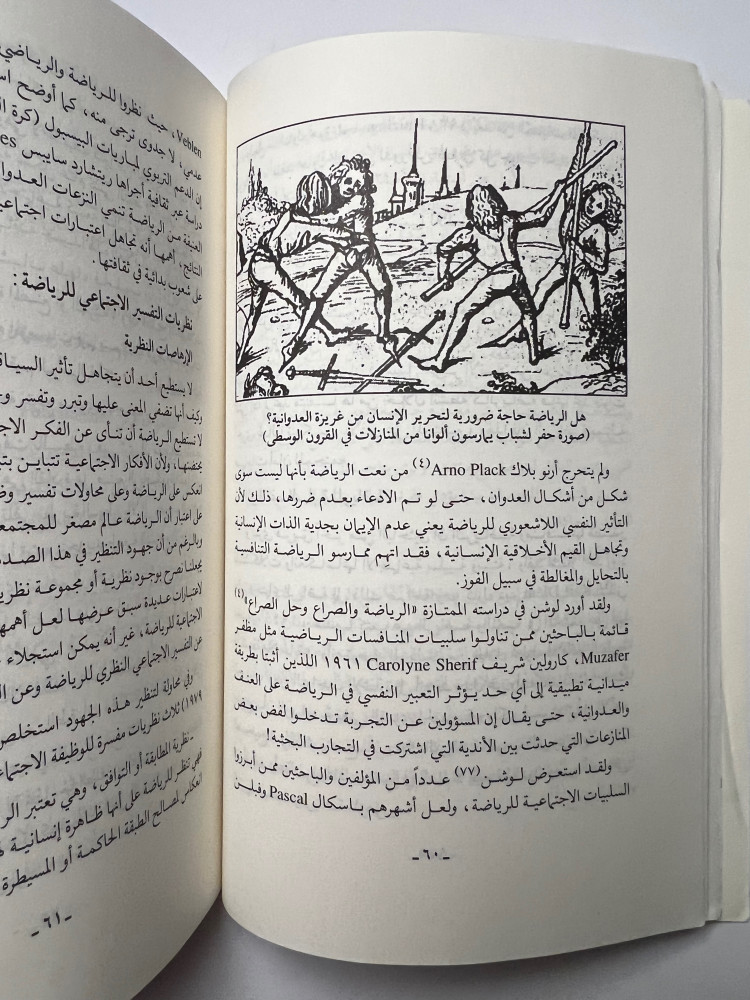 هل الرياضة حاجة ضرورية لتحرير الإنسان من غريزة العدوانية؟
(صورة حفر لشباب يمارسون ألوانا من المنازلات في القرون الوسطى)
ولم يتحرج أرنو بلاك Arno Plack(٤) من نعت الرياضة بأنها ليست سوى
شكل من أشكال العدوان، حتى لو تم الادعاء بعدم ضررها، ذلك لأن
التأثير النفسي اللاشعوري للرياضة يعني عدم الإيمان بجدية الذات الإنسانية
وتجاهل القيم الأخلاقية الإنسانية، فقد اتهم ممارسو الرياضة التنافسية
بالتحايل والمغالطة في سبيل الفوز.
ولقد أورد لوشن في دراسته الممتازة «الرياضة والصراع وحل الصراع»(٤)
قائمة بالباحثين ممن تناولوا سلبيات المنافسات الرياضية مثل مظفر
Muzafer، كارولين شريف Carolyne Sherif ١٩٦١ اللذين أثبتا بطريقة
ميدانية تطبيقية إلى أي حد يؤثر التعبير النفسي في الرياضة على العنف
والعدوانية، حتى يقال إن المسؤولين عن التجربة تدخلوا لفض بعض
المنازعات التي حدثت بين الأندية التي اشتركت في التجارب البحثية!
ولقد استعرض لوشن(٧٧) عدداً من المؤلفين والباحثين ممن أبرزوا
السلبيات الاجتماعية للرياضة، ولعل أشهرهم باسكال Pascal وفبلن
ـ٦٠ـ
Veblen، حيث نظروا للرياضة والرياضي
عدمي، لا جدوى ترجى منه، كما أوضح
إن الدعم التربوي لمباريات البيسبول (كرة
دراسة عبر ثقافية أجراها ريتشارد سايبس
العنيفة من الرياضة تنمي النزعات
النتائج، أهمها أنه تجاهل اعتبارات
على شعوب بدائية في ثقافتها.
نظريات التفسير الاجتماعي للرياضة:
الإرهاصات النظرية
لا يستطيع أحد أن يتجاهل تأثير
وكيف أنها تضفي المعنى عليها وتبرر وتفسر
لا تستطيع الرياضة أن تنأى عن الفكر
يحتضنها، ولأن الأفكار الاجتماعية تتباين
انعكس على الرياضة وعلى محاولات تفسير
على اعتبار أن الرياضة عالم مصغر للمجتمع
وبالرغم من أن جهود التنظير في هذا
يجعلنا نصرح بوجود نظرية أو مجموعة
لاعتبارات عديدة سبق عرضها لعل أهمها
الاجتماعية للرياضة، غير أنه يمكن استجلاء
عن التفسير الاجتماعي النظري للرياضة وعن
وفي محاولة لتنظير هذه الجهود استخلص
١٩٧٩) ثلاث نظريات مفسرة للوظيفة
ـ نظرية المطابقة أو التوافق، وهي تعتبر
فهي تنظر للرياضة على أنها ظاهرة إنسانية
انعكس لصالح الطبقة الحاكمة أو المسيطرة
ـ٦١ـ